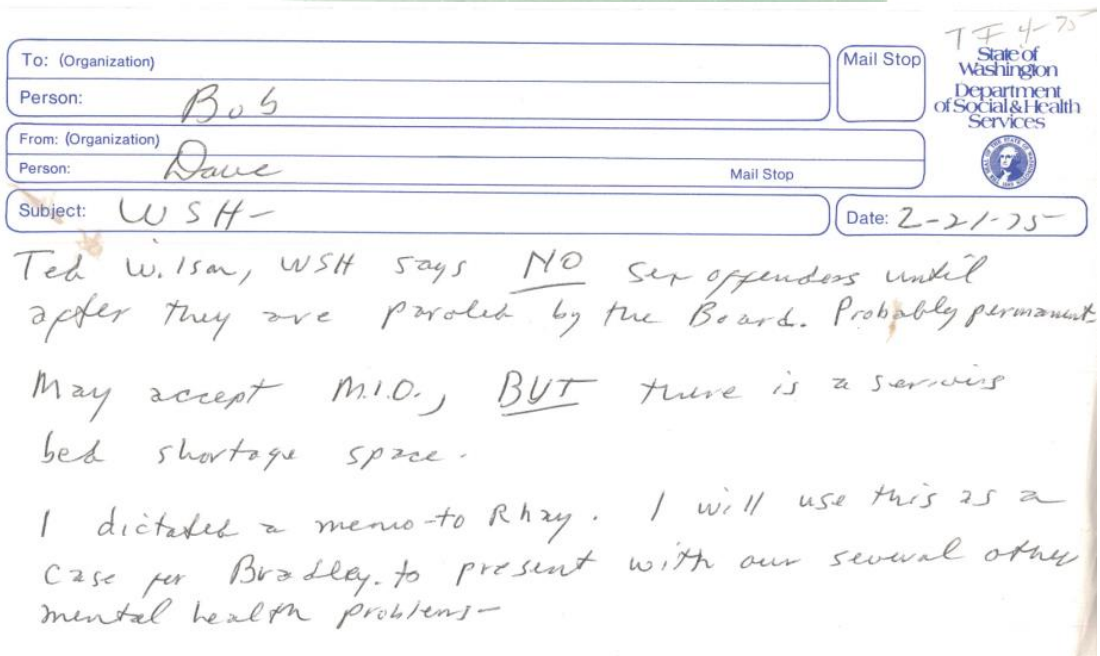 TF 4-75
To: (Organization)
Mail Stop
State of
Washington
Department
of Social & Health
Services
Person: Bob
From: (Organization)
Person: Dave
Mail Stop
Subject: WSH-
Date: 2-21-75
Ted Wilson, WSH says NO sex offenders until
after they are paroled by the Board. Probably permanent-
May accept M.I.O., BUT there is a serious
bed shortage space.
I dictated a memo-to Rhay. I will use this as a
case for Bradley. to present with our several other
mental health problems-